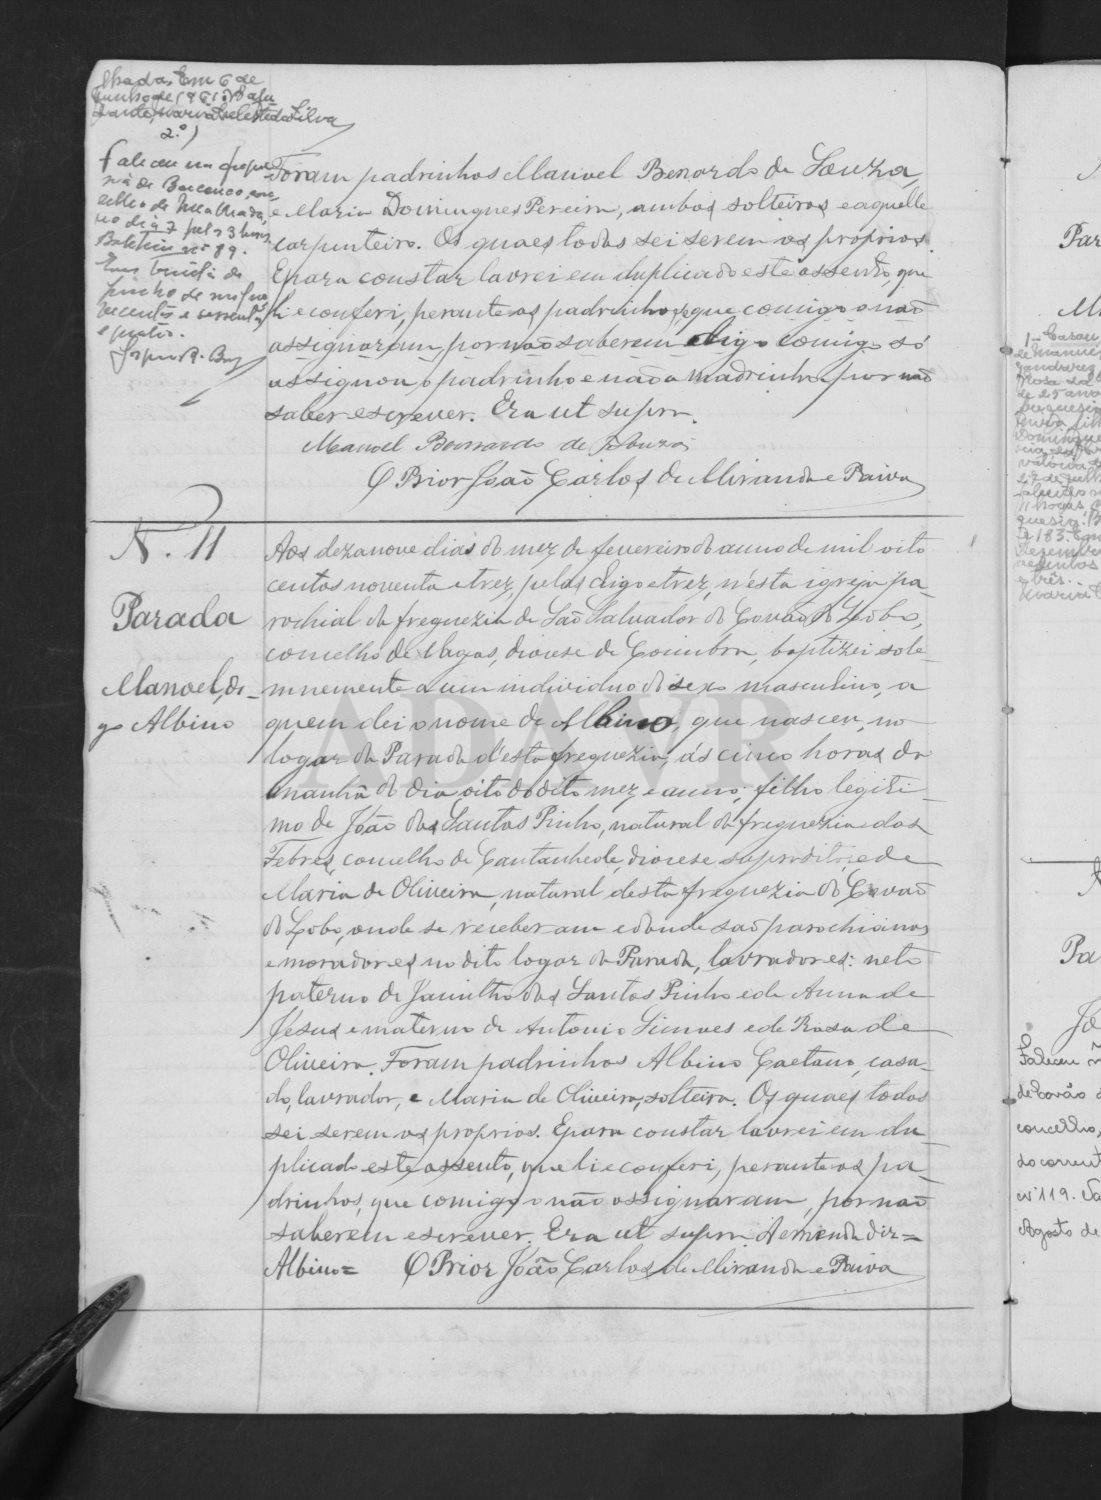 lhadas Em 6 de
Junho de 1961. O Aju
dante, Maria Celeste da Silva
2.º)
Faleceu na fregue
sia de Barcouço, con
celho da Mealhada,
no dia 7 pelas 3 horas
Boletim nº 89.
Em trinta de
junho de mil no
vecentos e sessenta
e quatro.
Foram padrinhos Manoel Bernardo de Souza,
e Maria Domingues Pereira, ambos solteiros e aquelle
carpinteiro. Os quaes todos sei serem os proprios.
E para constar lavrei em duplicado este assento, que
li e conferi, perante os padrinhos, que comigo o não
assignaram por não saberem digo comigo só
assignou o padrinho e não a madrinha por não
saber escrever. Era ut supra.
Manoel Bernardo de Souza
O Prior João Carlos de Miranda e Paiva
N. 11
Parada
Manoel, di-
go Albino
Aos dezanove dias do mez de fevereiro do anno de mil oito
centos noventa e trez, pelas digo e trez, n'esta igreja pa-
rochial da freguezia de São Salvador do Covão do Lobo,
concelho de Vagos, diocese de Coimbra, baptizei sole-
mnemente a um individuo do sexo masculino, a
quem dei o nome de Albino, que nasceu, no
logar da Parada d'esta freguezia, ás cinco horas da
manhã do dia oito do dito mez e anno, filho legiti-
mo de João dos Santos Pinho, natural da freguezia das
Febres, concelho de Cantanhede, diocese supradita, e de
Maria de Oliveira, natural desta freguezia do Covão
do Lobo, onde se receberam e donde são parochianos
e moradores no dito logar da Parada, lavradores: neto
paterno de Jacintho dos Santos Pinho e de Anna de
Jesus e materno de Antonio Simoes e de Rosa de
Oliveira. Foram padrinhos Albino Caetano, casa-
do, lavrador, e Maria de Oliveira, solteira. Os quaes todos
sei serem os proprios. E para constar lavrei em du-
plicado este assento, que li e conferi, perante os pa-
drinhos, que comigo o não assignaram, por não
saberem escrever. Era ut supra. A emenda diz =
Albino = O Prior João Carlos de Miranda e Paiva
ADAVR
Par
1- Casou
de Manuel
Rosa da
de 25 anos
Domingue
Dezembro
e três.
Pa
Jo
Faleceu n
de Covão d
concelho,
do corrent
nº 119. Va
Agosto de